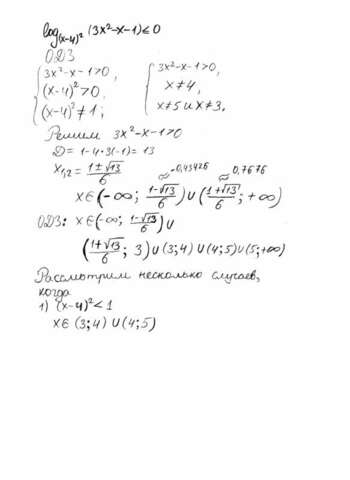 log_{(x-4)²} (3x²-x-1) ≤ 0
ОДЗ
{ 3x²-x-1>0, { 3x²-x-1>0,
(x-4)²>0, x≠4,
(x-4)²≠1; x≠5 и x≠3,
Решим 3x²-x-1>0
D = 1-4·3(-1) = 13
x₁,₂ = (1±√13)/6 ≈ -0,43426 ≈ 0,7676
x∈(-∞; (1-√13)/6) ∪ ((1+√13)/6; +∞)
ОДЗ: x∈(-∞; (1-√13)/6) ∪
((1+√13)/6; 3) ∪ (3;4) ∪ (4;5) ∪ (5;+∞)
Рассмотрим несколько случаев,
когда
1) (x-4)² < 1
x∈ (3;4) ∪ (4;5)